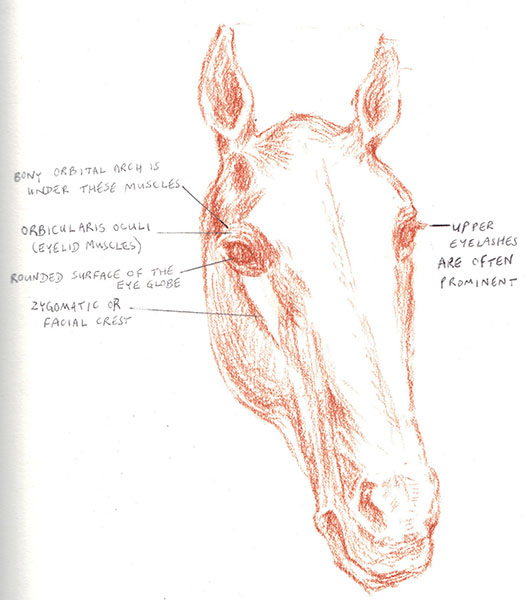 BONY ORBITAL ARCH IS
UNDER THESE MUSCLES
ORBICULARIS OCULI
(EYELID MUSCLES)
ROUNDED SURFACE OF THE
EYE GLOBE
ZYGOMATIC OR
FACIAL CREST
UPPER
EYELASHES
ARE OFTEN
PROMINENT